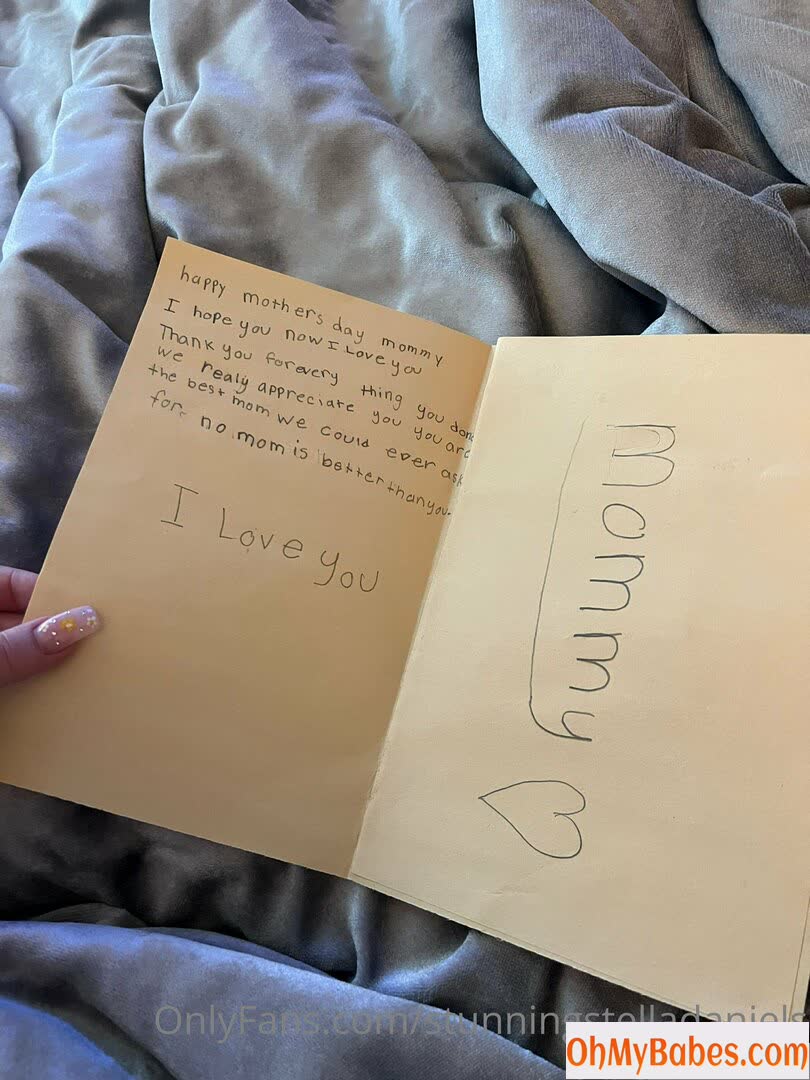 happy mothers day mommy
I hope you now I Love you
Thank you for every thing you done
we realy appreciate you you are
the best mom we could ever ask
for. no mom is better than you.
I Love you
Mommy
OnlyFans.com/stunningstelladaniels
OhMyBabes.com